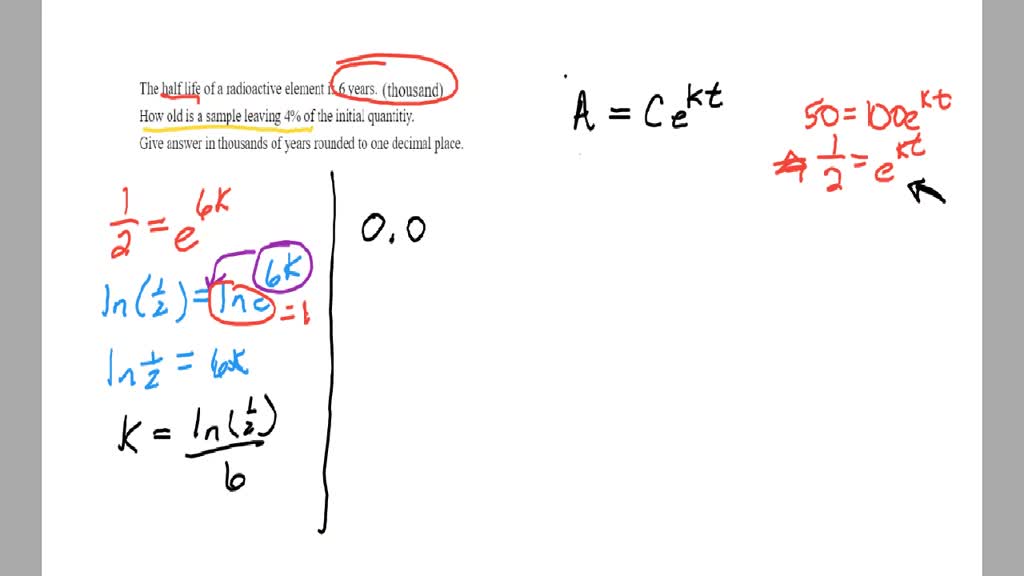 The half life of a radioactive element is 6 years. (thousand)
How old is a sample leaving 4% of the initial quantitiy.
Give answer in thousands of years rounded to one decimal place.
A = Ce^kt
50 = 100e^kt
1/2 = e^kt
1/2 = e^6k
ln(1/2) = ln e^6k = 1
ln 1/2 = 6k
k = ln(1/2)/6
0.0